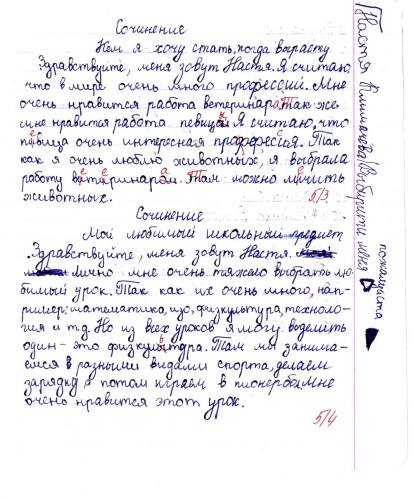 Сочинение
Кем я хочу стать, когда вырасту
Здравствуйте, меня зовут Настя. Я считаю,
что в мире очень много профессий. Мне
очень нравится работа ветеринара. Так же
мне нравится работа певицы. Я считаю, что
певица очень интересная профессия. Так
как я очень люблю животных, я выбрала
работу ветеринаром. Там можно лечить
животных.
5/3
Сочинение
Мой любимый школьный предмет
Здравствуйте, меня зовут Настя.
Лично мне очень тяжело выбрать лю-
бимый урок. Так как их очень много, нап-
ример: математика, изо, физкультура, техноло-
гия и т.д. Но из всех уроков я могу выделить
один - это физкультура. Там мы занима-
емся в разными видами спорта, делаем
зарядку а потом играем в пионербол. Мне
очень нравится этот урок.
5/4
Настя Климакова Выберити меня
пожалыйста